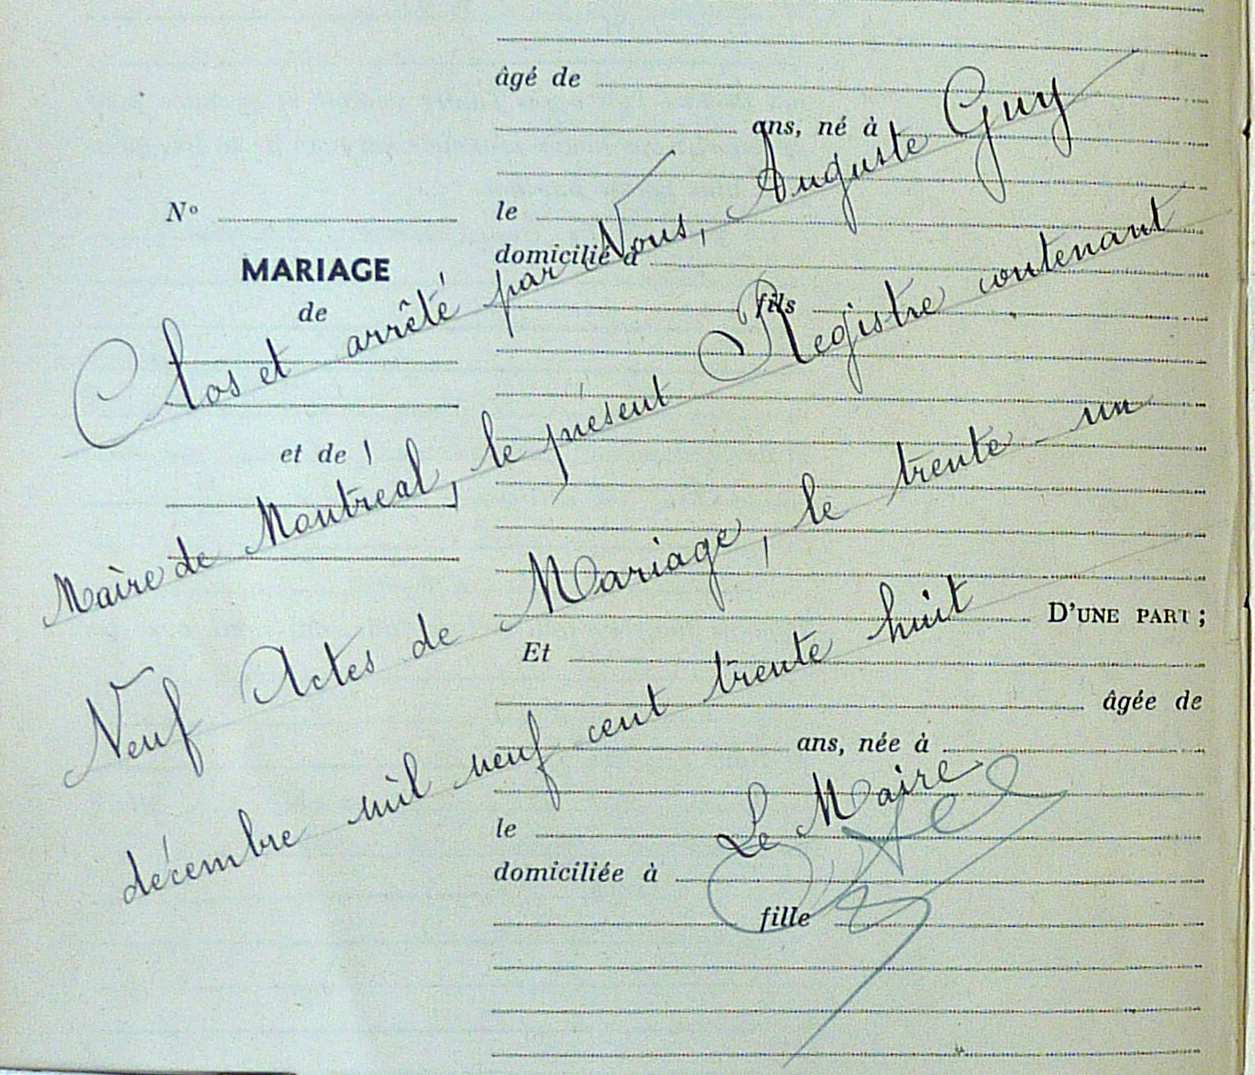 âgé de
ans, né à
N° le
MARIAGE domicilié à
de fils
et de
D'UNE PART ;
Et
âgée de
ans, née à
le
domiciliée à
fille
Clos et arrêté par Nous, Auguste Guy
Maire de Montreal, le présent Registre contenant
Neuf Actes de Mariage, le trente-un
décembre mil neuf cent trente huit
Le Maire